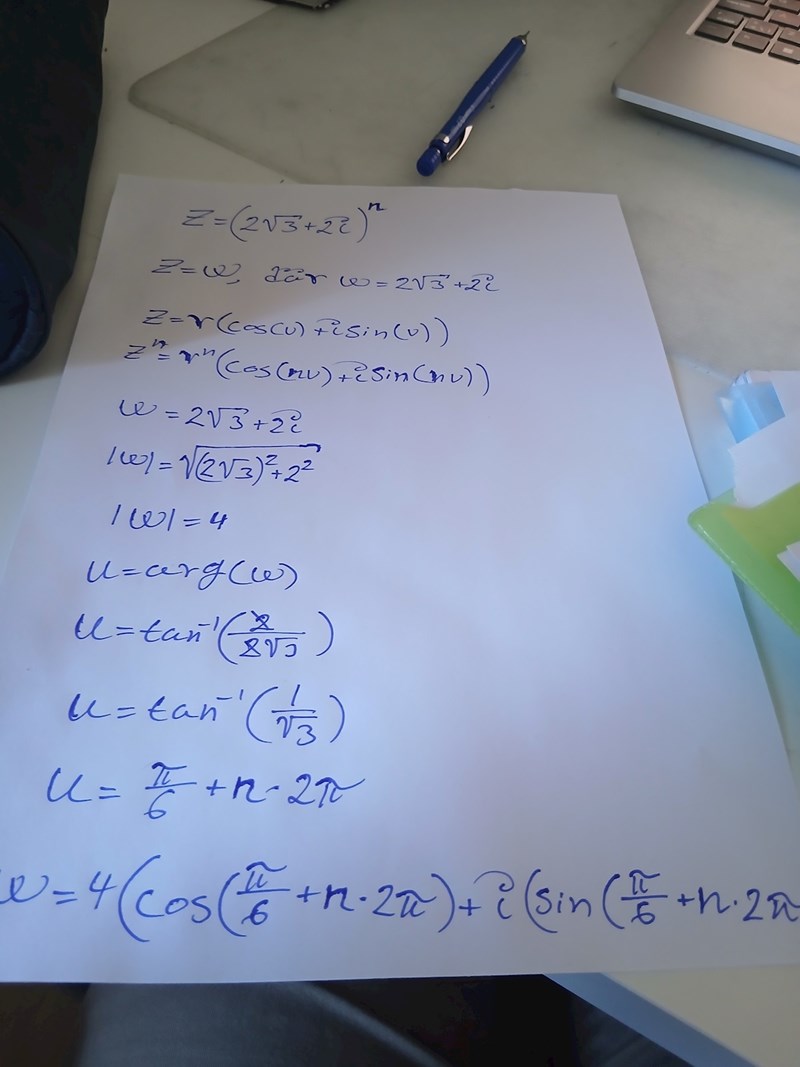 z=(2√3+2i)ⁿ
z=w, där w=2√3+2i
z=r(cos(v)+isin(v))
zⁿ=rⁿ(cos(nv)+isin(nv))
w=2√3+2i
|w|=√((2√3)²+2²)
|w|=4
u=arg(w)
u=tan⁻¹(2/2√3)
u=tan⁻¹(1/√3)
u=π/6+n·2π
w=4(cos(π/6+n·2π)+i(sin(π/6+n·2π